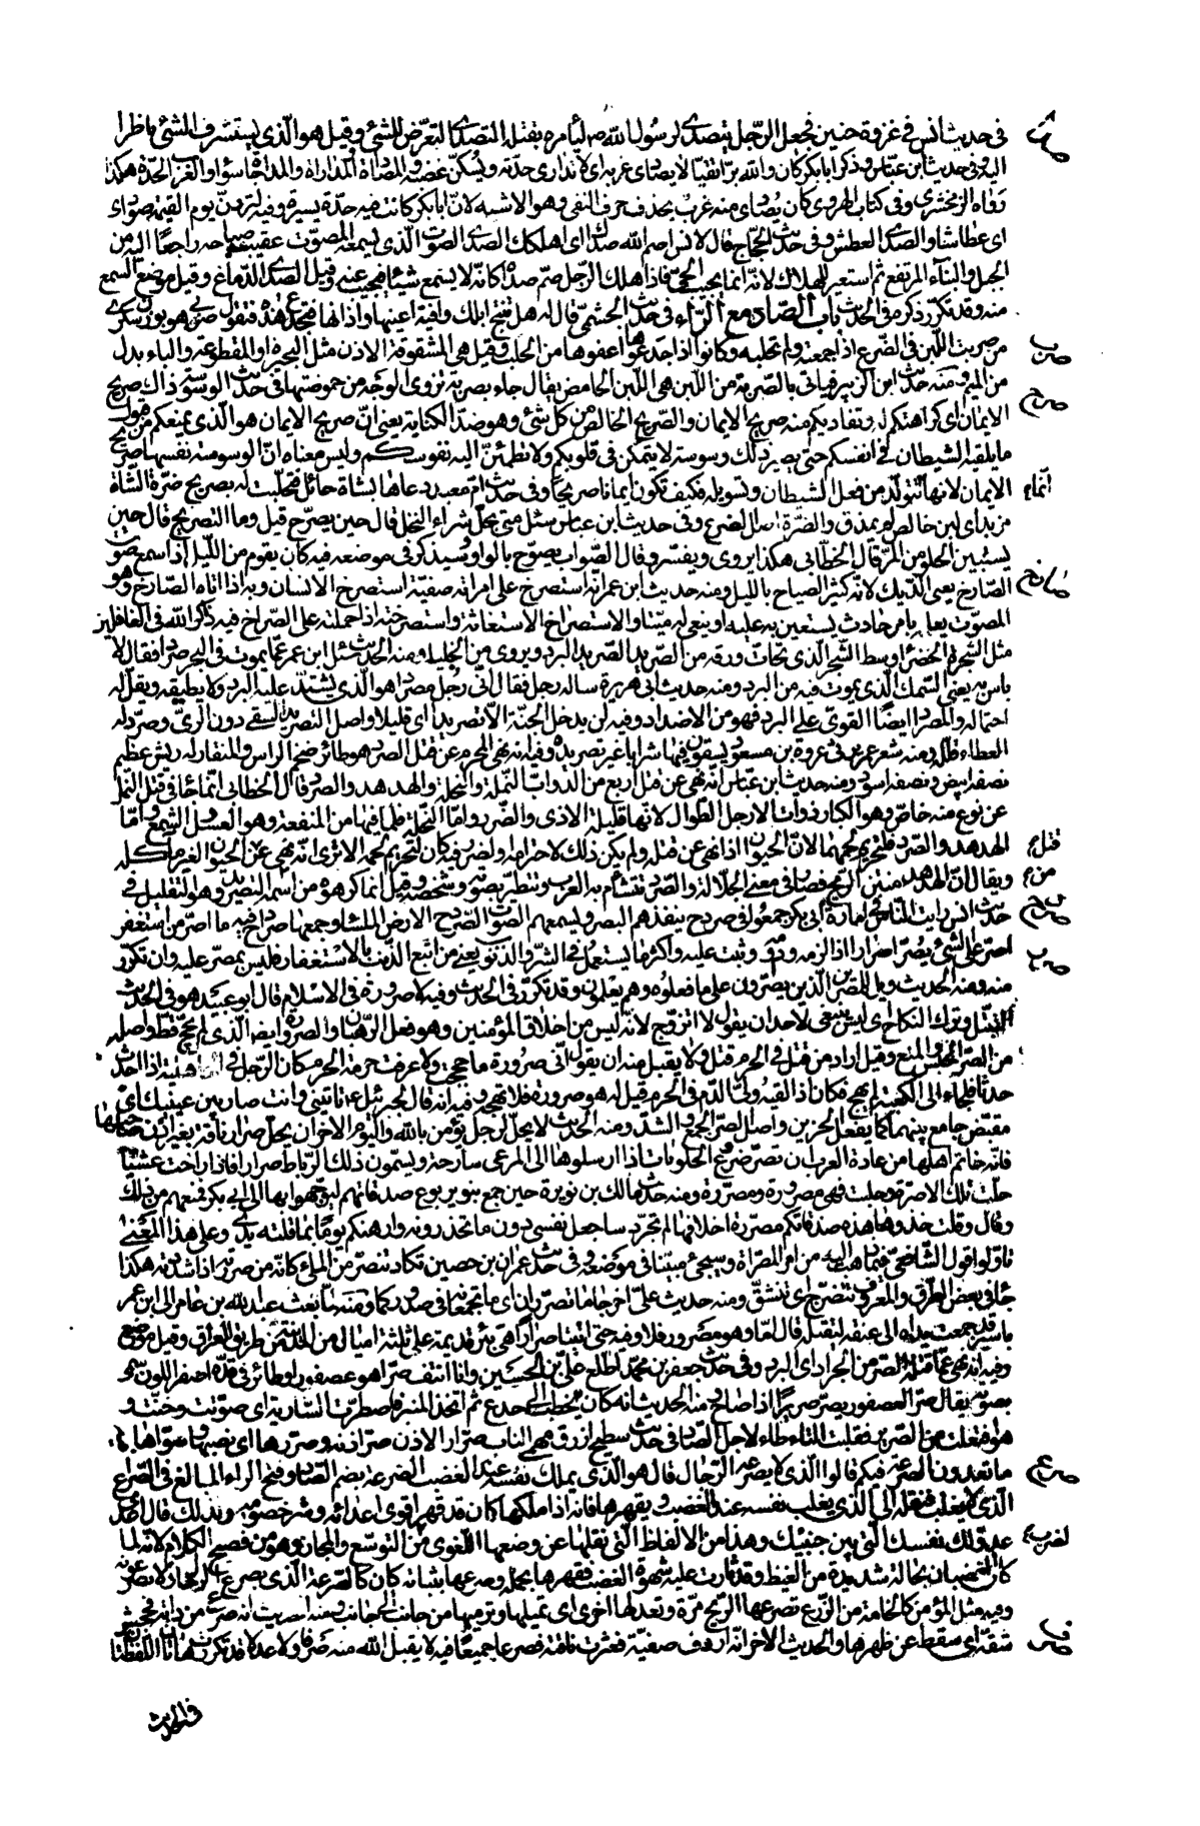 فى حديث انس فى غزوة حنين فجعل الرّجل يتصدى لرسول الله صم ليأمره بقتله التصدى التعرّض للشئ وقيل هو الّذى يستشرف الشئ ناظرا
اليه وفى حديث ابن عباس وذكر ابا بكر كان والله برّا تقيّا لا يصادى غربه اى لا تدارى حدّته ويسكّن غضبه والمصاداة المداراة والمداجاة سواء والغرب الحدّة هكذا
رواه الزمخشرى وفى كتاب الهروى كان يصادى منه غرب بحذف حرف النفى وهو الاشبه لانّ ابا بكر كانت فيه حدّة يسيرة وفيه لتردنّ يوم القيمة صوادى
اى عطاشا والصدى العطش وفى حديث الحجّاج قال لانس اصم الله صداك اى اهلكك الصدى الصوت الّذى يسمعه المصوّت عقيب صياحه راجعًا اليه من
الجبل والبناء المرتفع ثم استعير للهلاك لانّه انما يجيب الحىّ فاذا هلك الرّجل صمّ صداه كانّه لا يسمع شيئا فيجيب عنه وقيل الصدى الدماغ وقيل موضع السمع
منه وقد تكرّر ذكره فى الحديث باب الصّاد مع الرّاء فى حديث الجشمى قال له هل تنتج ابلك وافية اعينها واذانها فتجدع هذه فتقول صربى هو بوزن سكرى
من صربت اللّبن فى الضّرع اذا جمعته ولم تحلبه وكانوا اذا جدعوها اعفوها من الحلب وقيل هى المشقوقة الاذن مثل البحيرة او المقطوعة والباء بدل
صرب
من الميم ومنه حديث ابن الزبير فياتى بالصّربة من اللّبن هى اللّبن الحامض يقال جاء بصربة تزوى الوجه من حموضتها فى حديث الوسوسة ذاك صريح
صرح
الايمان اى كراهتكم له وتفاديكم منه صريح الايمان والصّريح الخالص من كلّ شئ وهو ضدّ الكناية يعنى انّ صريح الايمان هو الّذى يمنعكم من قبول
ما يلقيه الشيطان فى انفسكم حتى يصير ذلك وسوسة لا يتمكّن فى قلوبكم ولا تطمئنّ اليه نفوسكم وليس معناه انّ الوسوسة نفسها صريح
انّما
الايمان لانها تتولّد من فعل الشيطان وتسويله فكيف تكون ايمانا صريحًا وفى حديث امّ معبد دعاها بشاة حائل فتحلّبت له بصريح ضرّة الشّاة
مزبد اى لبن خالص لم يمذق والضّرة اصل الضرع وفى حديث ابن عباس سئل متى يحلّ شراء النخل قال حين يصرّح قيل وما التصريح قال حين
يستبين الحلو من المرّ قال الخطّابى هكذا يروى ويفسّر وقال الصّواب يصوّح بالواو وسيذكر فى موضعه فيه كان يقوم من اللّيل اذا سمع صوت
صرخ
الصّارخ يعنى الدّيك لانّه كثير الصياح باللّيل ومنه حديث ابن عمر انّه استصرخ على امراته صفيّة استصرخ الانسان وبه اذا اتاه الصّارخ وهو
المصوّت يعلمه بامر حادث يستعين به عليه او ينعى له ميّتا والاستصراخ الاستغاثة واستصرخته اذا حملته على الصّراخ فيه ذاكر الله فى الغافلين
مثل الشجرة الخضراء وسط الشّجر الّذى تحاتّ ورقه من الصّريد الصّريد البرد ويروى من الجليد ومنه الحديث سئل ابن عمر عمّا يموت فى البحر صردا فقال لا
باس به يعنى السّمك الّذى يموت فيه من البرد ومنه حديث ابى هريرة ساله رجل فقال انّى رجل مصراد هو الّذى يشتدّ عليه البرد ولا يطيقه ويقلّ له
احتماله والمصراد ايضًا القوىّ على البرد فهو من الاضداد وفيه لن يدخل الجنّة الّا تصريدا اى قليلا واصل التصريد السقى دون الرىّ وصرّد له
العطاء قلّله ومنه شعر عمر فى عروة بن مسعود يسقون فيها شرابا غير تصريد وفيه انه نهى المحرم عن قتل الصرد هو طائر ضخم الراس والمنقار له ريش عظيم
نصفه ابيض ونصفه اسود ومنه حديث ابن عبّاس انّه نهى عن قتل اربع من الدوابّ النّملة والنحلة والهدهد والصرد قال الخطّابى انّما جاء فى قتل النمل
عن نوع منه خاصّ وهو الكبار ذوات الارجل الطّوال لانها قليلة الاذى والضّرر وامّا النّحلة فلما فيها من المنفعة وهو العسل والشمع وامّا
الهدهد والصّرد فلتحريم لحمهما لانّ الحيوان اذا نهى عن قتله ولم يكن ذلك لاحترامه او لضرر فيه كان لتحريم لحمه الا ترى انّه نهى عن قتل الحيوان لغير ماكله
قتل
ويقال انّ الهدهد منتن الرّيح فصار فى معنى الجلّالة والصّرد تتشأم به العرب وتتطيّر بصوته وشخصه وقيل انّما كرهوه من اسمه التصريد وهو التقليل فى
من
حديث انس رايت النّاس فى امارة ابى بكر جمعوا فى صردح ينفذهم البصر ويسمعهم الصّوت الصّردح الارض الملساء وجمعها صرادح فيه ما اصرّ من استغفر
صردح
اصرّ على الشّئ يصرّ اصرارا اذا لزمه وداومه وثبت عليه واكثر ما يستعمل فى الشرّ والذنوب يعنى من اتبع الذّنب بالاستغفار فليس بمصرّ عليه وان تكرّر
صرر
منه ومنه الحديث ويل للمصرّين الّذين يصرّون على ما فعلوه وهم يعلمون وقد تكرّر فى الحديث وفيه لا صرورة فى الاسلام قال ابو عبيد هو فى الحديث
التبتّل وترك النكاح اى ليس ينبغى لاحد ان يقول لا اتزوّج لانّه ليس من اخلاق المؤمنين وهو فعل الرّهبان والصرورة ايضا الّذى لم يحجّ قطّ واصله
من الصرّ الحبس والمنع وقيل اراد من قتل فى الحرم قتل ولا يقبل منه ان يقول انّى صرورة ما حججت ولا عرفت حرمة الحرم كان الرّجل فى الجاهلية اذا احدث
حدثا فلجأ الى الكعبة لم يهج فكان اذا لقيه ولىّ الدّم فى الحرم قيل له هو صرورة فلا تهجه وفيه انّه قال لجبرئيل تاتينى وانت صارّ بين عينيك اى
مقبّض جامع بينهما كما يفعل الحزين واصل الصّرّ الجمع والشدّ ومنه الحديث لا يحلّ لرجل يؤمن بالله واليوم الاخر ان يحلّ صرار ناقة بغير اذن صاحبها
فانّه خاتم اهلها من عادة العرب ان تصرّ ضروع الحلوبات اذا ارسلوها الى المرعى سارحة ويسمّون ذلك الرّباط صرارا فاذا راحت عشيّا
حلّت تلك الاصرّة وحلبت فهى مصرورة ومصرّرة ومنه حديث مالك بن نويرة حين جمع بنو يربوع صدقاتهم ليوجّهوا بها الى ابى بكر فمنعهم من ذلك
وقال وقلت خذوها هذه صدقاتكم مصرّرة اخلافها لم تجرّد ساجعل نفسى دون ما تحذرونه وارهنكم يومًا بما قلته يدى وعلى هذا المعنى
تاوّلوا قول الشّافعىّ فيما ذهب اليه من امر المصرّاة وسيجئ مبيّنا فى موضعه وفى حديث عمران بن حصين تكاد تنصرّ من الملء كانّه من صررته اذا شددته هكذا
جاء فى بعض الطّرق والمعروف تنضرج اى تنشقّ ومنه حديث علىّ اخرجا ما تصرّرانه اى ما تجمعانه فى صدوركما ومنه لمّا بعث عبد الله بن عامر الى ابن عمر
باسير قد جمعت يداه الى عنقه ليقتله قال امّا وهو مصرور فلا وفيه حتى اتينا صرارا هى بئر قديمة على ثلثة اميال من المدينة من طريق العراق وقيل موضع
وفيه انّه نهى عمّا قتله الصّرّ من الجراد اى البرد وفى حديث جعفر بن محمّد اطّلع علىّ بن الحسين وانا انتف صرّا هو عصفور او طائر فى قدّه اصفر اللّون سمّى
بصوته يقال صرّ العصفور يصرّ صريرًا اذا صاح ومنه الحديث انّه كان يخطب الى جذع ثم اتّخذ المنبر فاصطرّت السّارية اى صوّتت وحنّت و
هو افتعلت من الصّرير فقلبت التاء طاء لاجل الصّاد فى حديث سطيح ازرق مهمى الناب صرّار الاذن صرّ اذنه وصرّرها اى نصبها وسوّاها فيه
ما تعدّون الصّرعة فيكم قالوا الّذى لا يصرعه الرّجال قال هو الّذى يملك نفسه عند الغضب الصّرعة بضم الصّاد وفتح الراء المبالغ فى الصّراع
صرع
الّذى لا يغلب فنقله الى الّذى يغلب نفسه عند الغضب ويقهرها فانّه اذا ملكها كان قد قهر اقوى اعدائه وشرّ خصومه ولذلك قال اعدى
عدوّ لك نفسك الّتى بين جنبيك وهذا من الالفاظ الّتى نقلها عن وضعها اللّغوى من التوسّع والمجاز وهو من فصيح الكلام لانّه لمّا
لضرب
كان الغضبان بحالة شديدة من الغيظ وقد ثارت عليه شهوة الغضب فقهرها بحلمه وصرعها بثباته كان كالصّرعة الّذى يصرع الرّجال ولا يصرعونه
وفيه مثل المؤمن كالخامة من الزّرع تصرعها الرّيح مرّة وتعدلها اخرى اى تميلها وترميها من جانب الى جانب ومنه الحديث انّه صرع من دابّة فجحش
شقّه اى سقط عن ظهرها والحديث الاخر انّه اردف صفيّة فعثرت ناقته فصرعا جميعًا فيه لا يقبل الله منه صرفا ولا عدلا قد تكرّرت هاتان اللّفظتان
صرف
فى الحديث